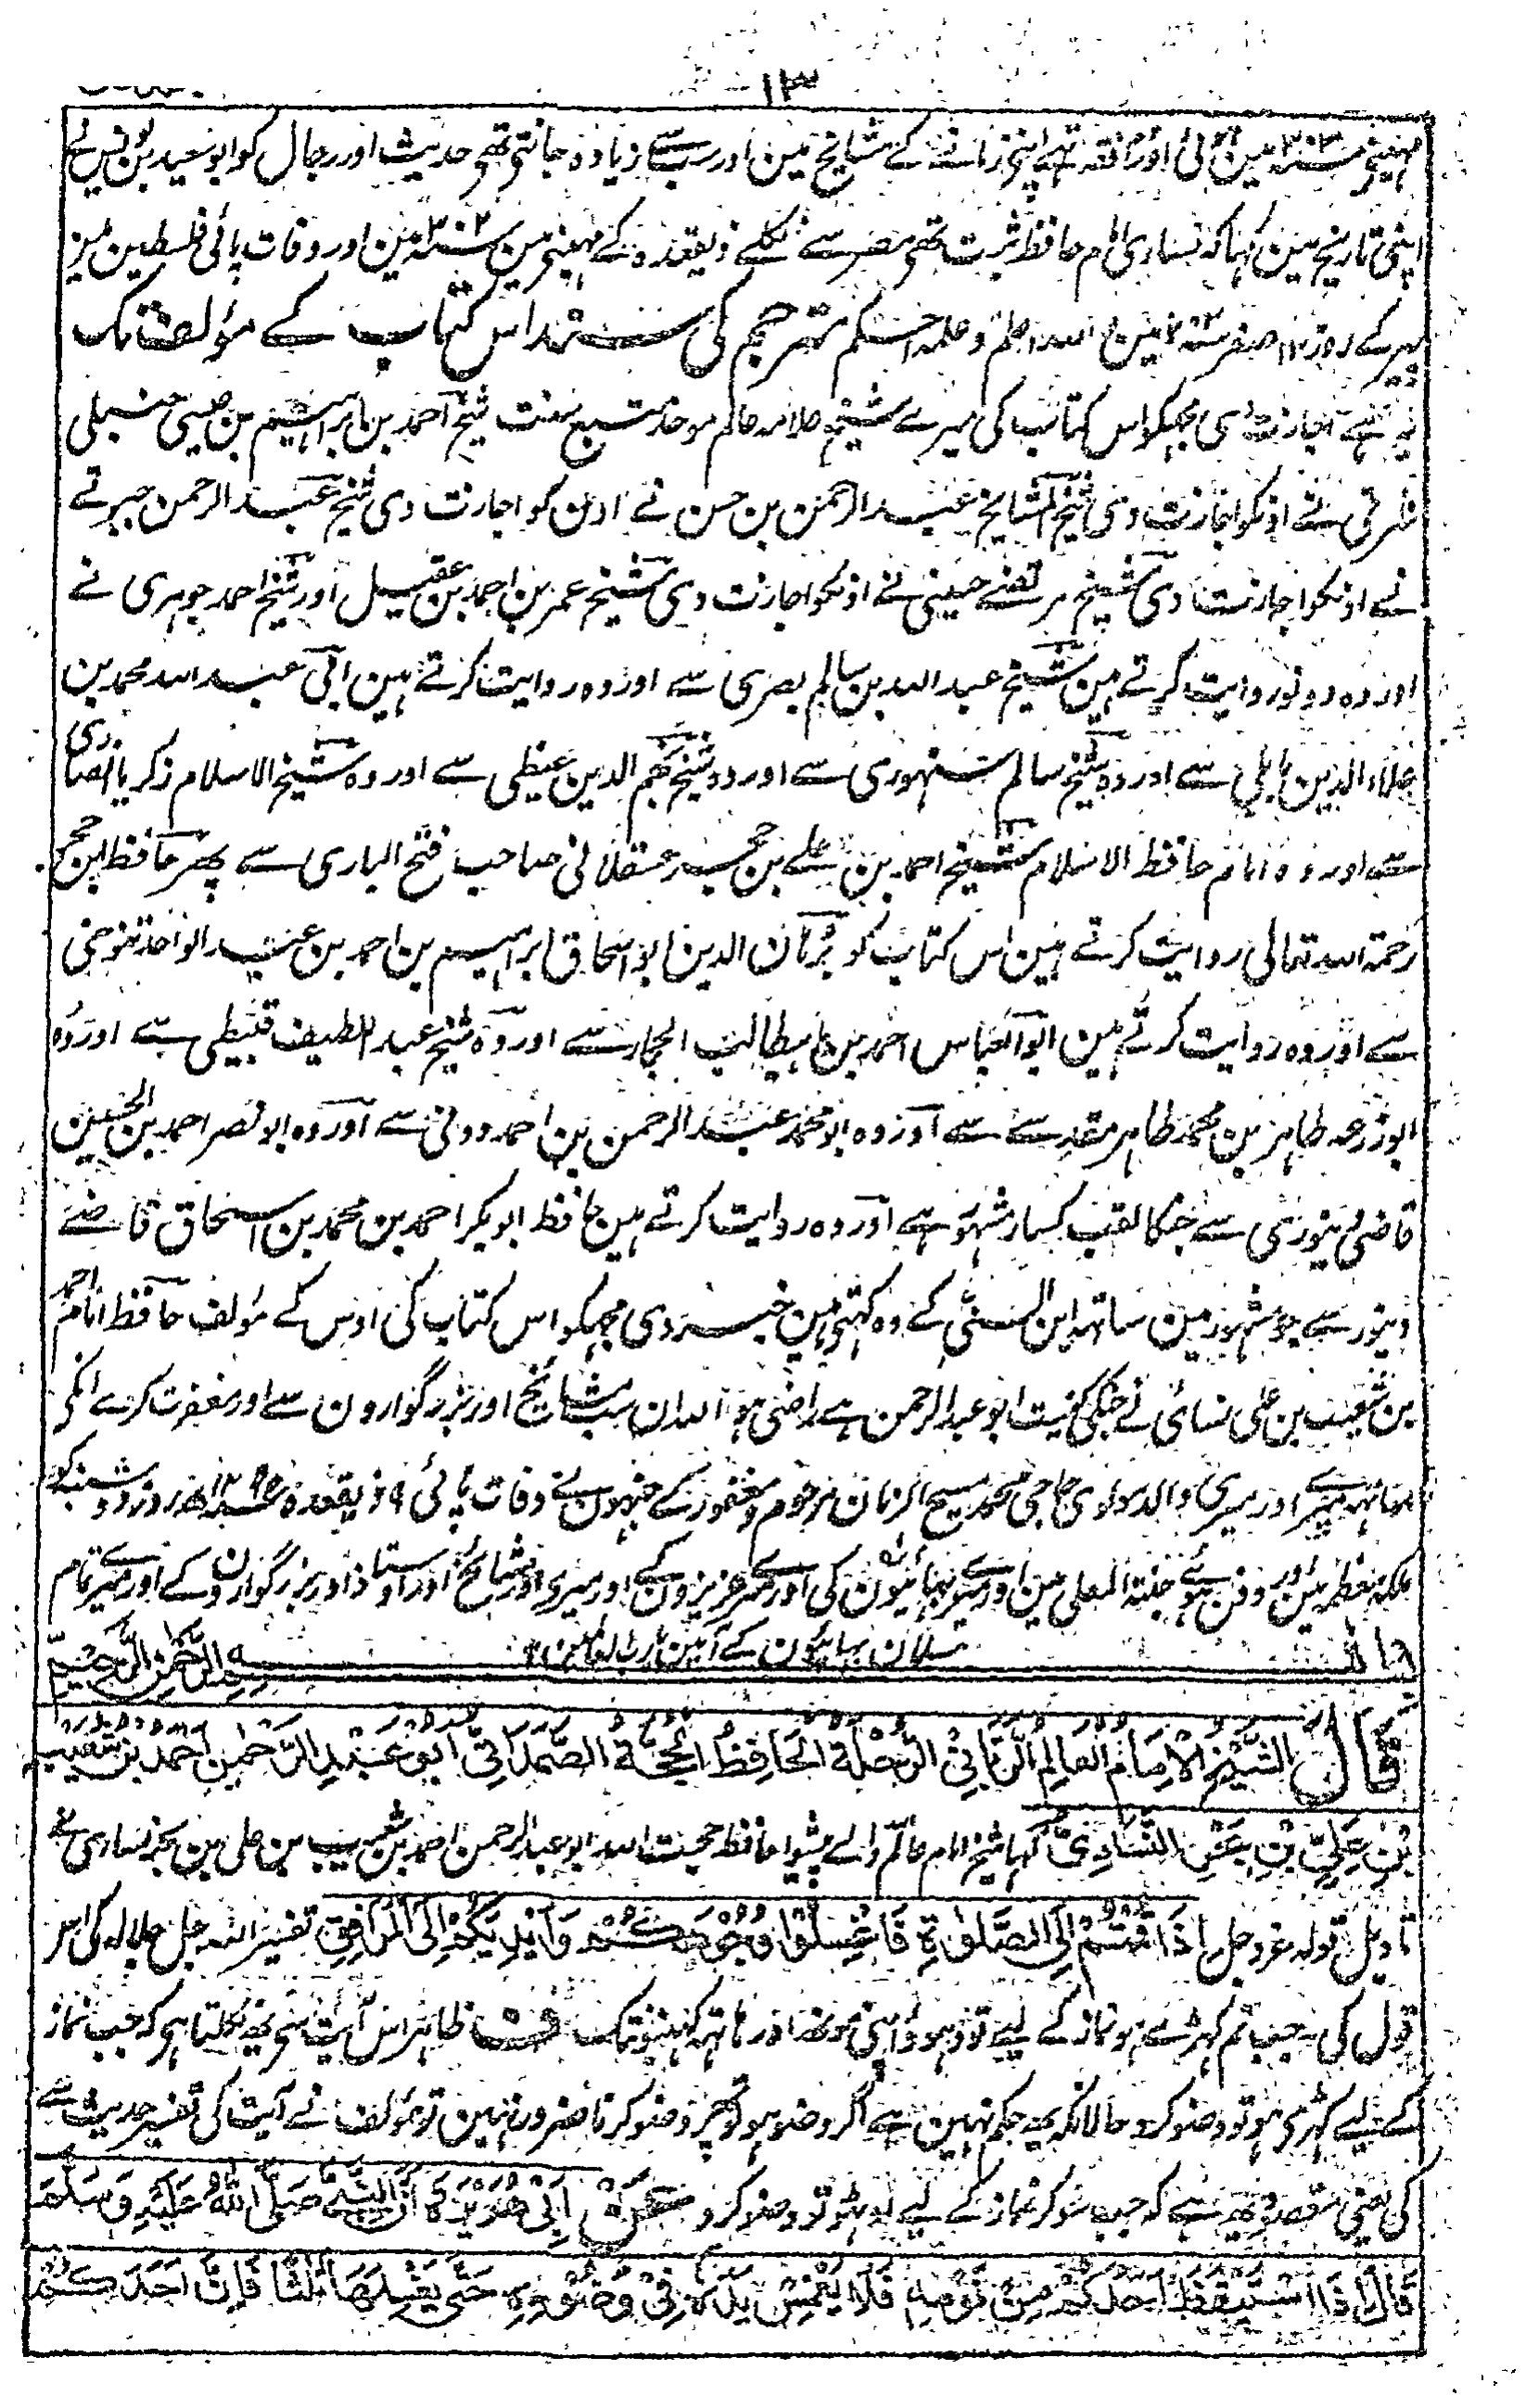 ۱۳
مہینے سنہ ۳۰۳ مین ہوئی اور افقہ تہے اپنی زمانے کے مشایخ مین اور سب سے زیادہ جانتی تھی حدیث اور رجال کو ابو سعید بن یونس نے
اپنی تاریخ مین کہا کہ نساوی امام حافظ ثبت تھی مصر سے نکلے ذیقعدہ کے مہینے مین سنہ ۳۰۲ مین اور وفات پائی فلسطین مین
پیر کے روز ۱۳ صفر سنہ ۳۰۳ مین واللہ اعلم وعلمہ احکم مترجم کی سند اس کتاب کے مؤلف تک
یہ ہے اجازت دی مجہکو اس کتاب کی میرے شیخ علامہ عالم موحد متبع سنت شیخ احمد بن ابراہیم بن عیسی حنبلی
شرقی نے اونکو اجازت دی شیخ المشایخ عبدالرحمن بن حسن نے اون کو اجازت دی شیخ عبدالرحمن جبرتے
نے اونکو اجازت دی شیخ مرتضے حسینی نے اونکو اجازت دی شیخ عمر بن احمد بن عقیل اور شیخ احمد جوہری نے
اور وہ دونو روایت کرتے ہین شیخ عبداللہ بن سالم بصری سے اور وہ روایت کرتے ہین ابی عبداللہ محمد بن
علاء الدین بابلی سے اور وہ شیخ سالم سنہوری سے اور وہ شیخ نجم الدین غیطی سے اور وہ شیخ الاسلام زکریا انصاری
سے اور وہ امام حافظ الاسلام شیخ احمد بن علے بن حجر عسقلانی صاحب فتح الباری سے پھر حافظ ابن حجر
رحمۃ اللہ تعالی روایت کرتے ہین اس کتاب کو برہان الدین ابو اسحاق ابراہیم بن احمد بن عبدالواحد تنوخی
سے اور وہ روایت کرتے ہین ابو العباس احمد بن ابیطالب الحجار سے اور وہ شیخ عبداللطیف قبیطی سے اور وہ
ابو زرعہ طاہر بن محمد طاہر مقدسے سے اور وہ ابو محمد عبدالرحمن بن احمد دونی سے اور وہ ابو نصر احمد بن الحسین
قاضی دینوری سے جنکا لقب کسار مشہور ہے اور وہ روایت کرتے ہین حافظ ابو بکر احمد بن محمد بن اسحاق قاضے
دینور سے جو مشہور ہین ساتہہ ابن السنی کے وہ کہتی ہین خبر دی مجہکو اس کتاب کی اوس کے مؤلف حافظ امام احمد
بن شعیب بن علی نسائی نے جنکی کنیت ابو عبدالرحمن ہے راضی ہو اللہ ان سب مشایخ اور بزرگوارون سے اور مغفرت کرے انکی
ساتہہ میرے اور میری والد مولوی حاجی محمد مسیح الزمان مرحوم و مغفور کے جنہون نے وفات پائی ۹ ذیقعدہ سنہ ۱۲۹۵ھ روز دوشنبہ کو
مکہ معظمہ مین اور دفن ہوئے جنۃ المعلی مین اور میرے بہائیون کی اور میرے عزیزون کے اور میری اور مشایخ اور اوستاذ اور بزرگوارون کے اور میرے تمام
مسلمان بہائیون کے آمین یا رب العالمین
بسم اللہ الرَّحْمٰنِ الرَّحِیْمِ
قَالَ الشَّیْخُ الْاِمَامُ الْعَالِمُ الرَّبَّانِیُّ الرُّحْلَةُ الْحَافِظُ الْحُجَّةُ الصَّمَدَانِیُّ اَبُوْ عَبْدِ الرَّحْمٰنِ اَحْمَدُ بْنُ شُعَیْبِ
بْنِ عَلِیِّ بْنِ بَحْرِ النَّسَاوِیُّ کہا شیخ امام عالم والے پیشوا حافظ حجت اللہ ابو عبدالرحمن احمد بن شعیب بن علی بن بحر نساوی نے
تاویل قولہ عزوجل اِذَا قُمْتُمْ اِلَی الصَّلٰوةِ فَاغْسِلُوْا وُجُوْهَكُمْ وَاَیْدِیَكُمْ اِلَی الْمَرَافِقِ تفسیر اللہ جل جلالہ کی اس
قول کی جب تم کہڑے ہو نماز کے لیے تو دہوؤ اپنی مونھ اور ہاتہہ کہنیو تک ف ظاہر اس آیت سے یہ نکلتا ہر کہ جب نماز
کے لیے کہڑی ہو تو وضو کرو حالانکہ یہ حکم نہین ہے اگر وضو ہو تو پھر وضو کرنا ضرور نہین تو مؤلف نے آیت کی تفسیر حدیث سے
کی یعنی مقصود یہ ہے کہ جب سو کر نماز کے لیے اوٹھو تو وضو کرو عَنْ اَبِیْ هُرَیْرَةَ اَنَّ النَّبِیَّ صَلَّی اللّٰهُ عَلَیْهِ وَسَلَّمَ
قَالَ اِذَا اسْتَیْقَظَ اَحَدُكُمْ مِنْ نَوْمِهِ فَلَا یَغْمِسْ یَدَهُ فِیْ وَضُوْءِهِ حَتّٰی یَغْسِلَهَا ثَلٰثًا فَاِنَّ اَحَدَكُمْ